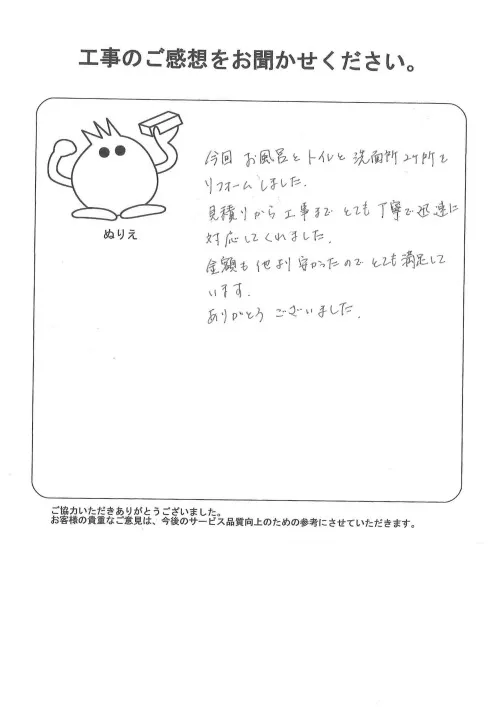 工事のご感想をお聞かせください。
ぬりえ
今回 お風呂とトイレと洗面所2ヶ所を
リフォームしました.
見積りから工事まで とても丁寧で迅速に
対応してくれました.
金額も他より安かったので とても満足して
います.
ありがとう ございました.
ご協力いただきありがとうございました。
お客様の貴重なご意見は、今後のサービス品質向上のための参考にさせていただきます。